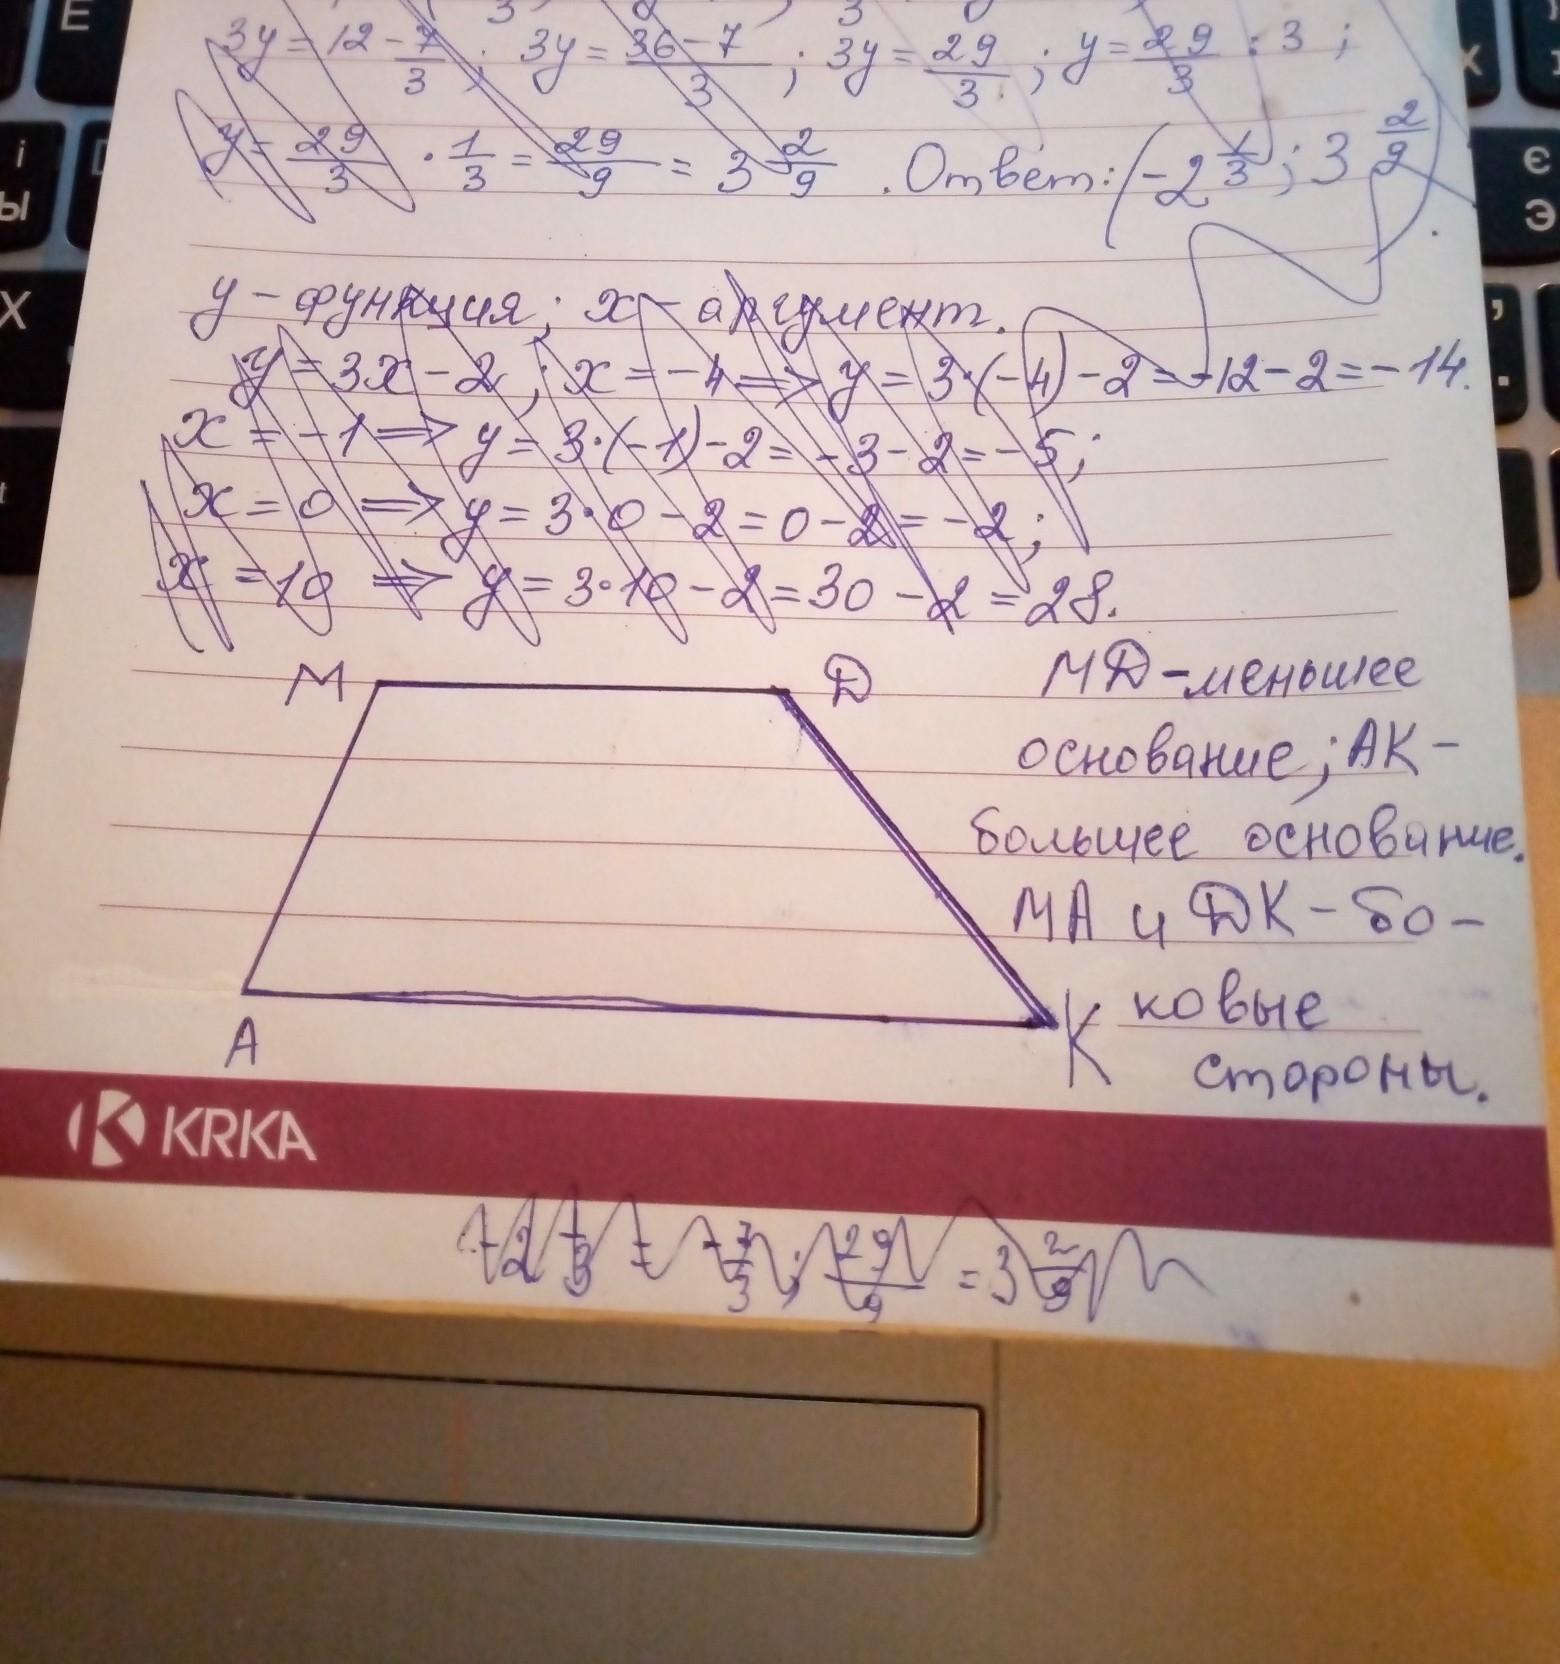 3y = 12 - 7/3 ; 3y = 36 - 7/3 ; 3y = 29/3 ; y = 29/3 : 3 ;
y = 29/3 · 1/3 = 29/9 = 3 2/9 . Ответ: (-2 1/3 ; 3 2/9
y - функция; x - аргумент.
y = 3x - 2 ; x = -4 => y = 3·(-4) - 2 = -12 - 2 = -14.
x = -1 => y = 3·(-1) - 2 = -3 - 2 = -5;
x = 0 => y = 3·0 - 2 = 0 - 2 = -2;
x = 10 => y = 3·10 - 2 = 30 - 2 = 28.
M D
MD - меньшее
основание; AK -
большее основание.
MA и DK - бо-
ковые
стороны.
A K
KRKA
-2 1/3 = -7/3 ; 29/9 = 3 2/9